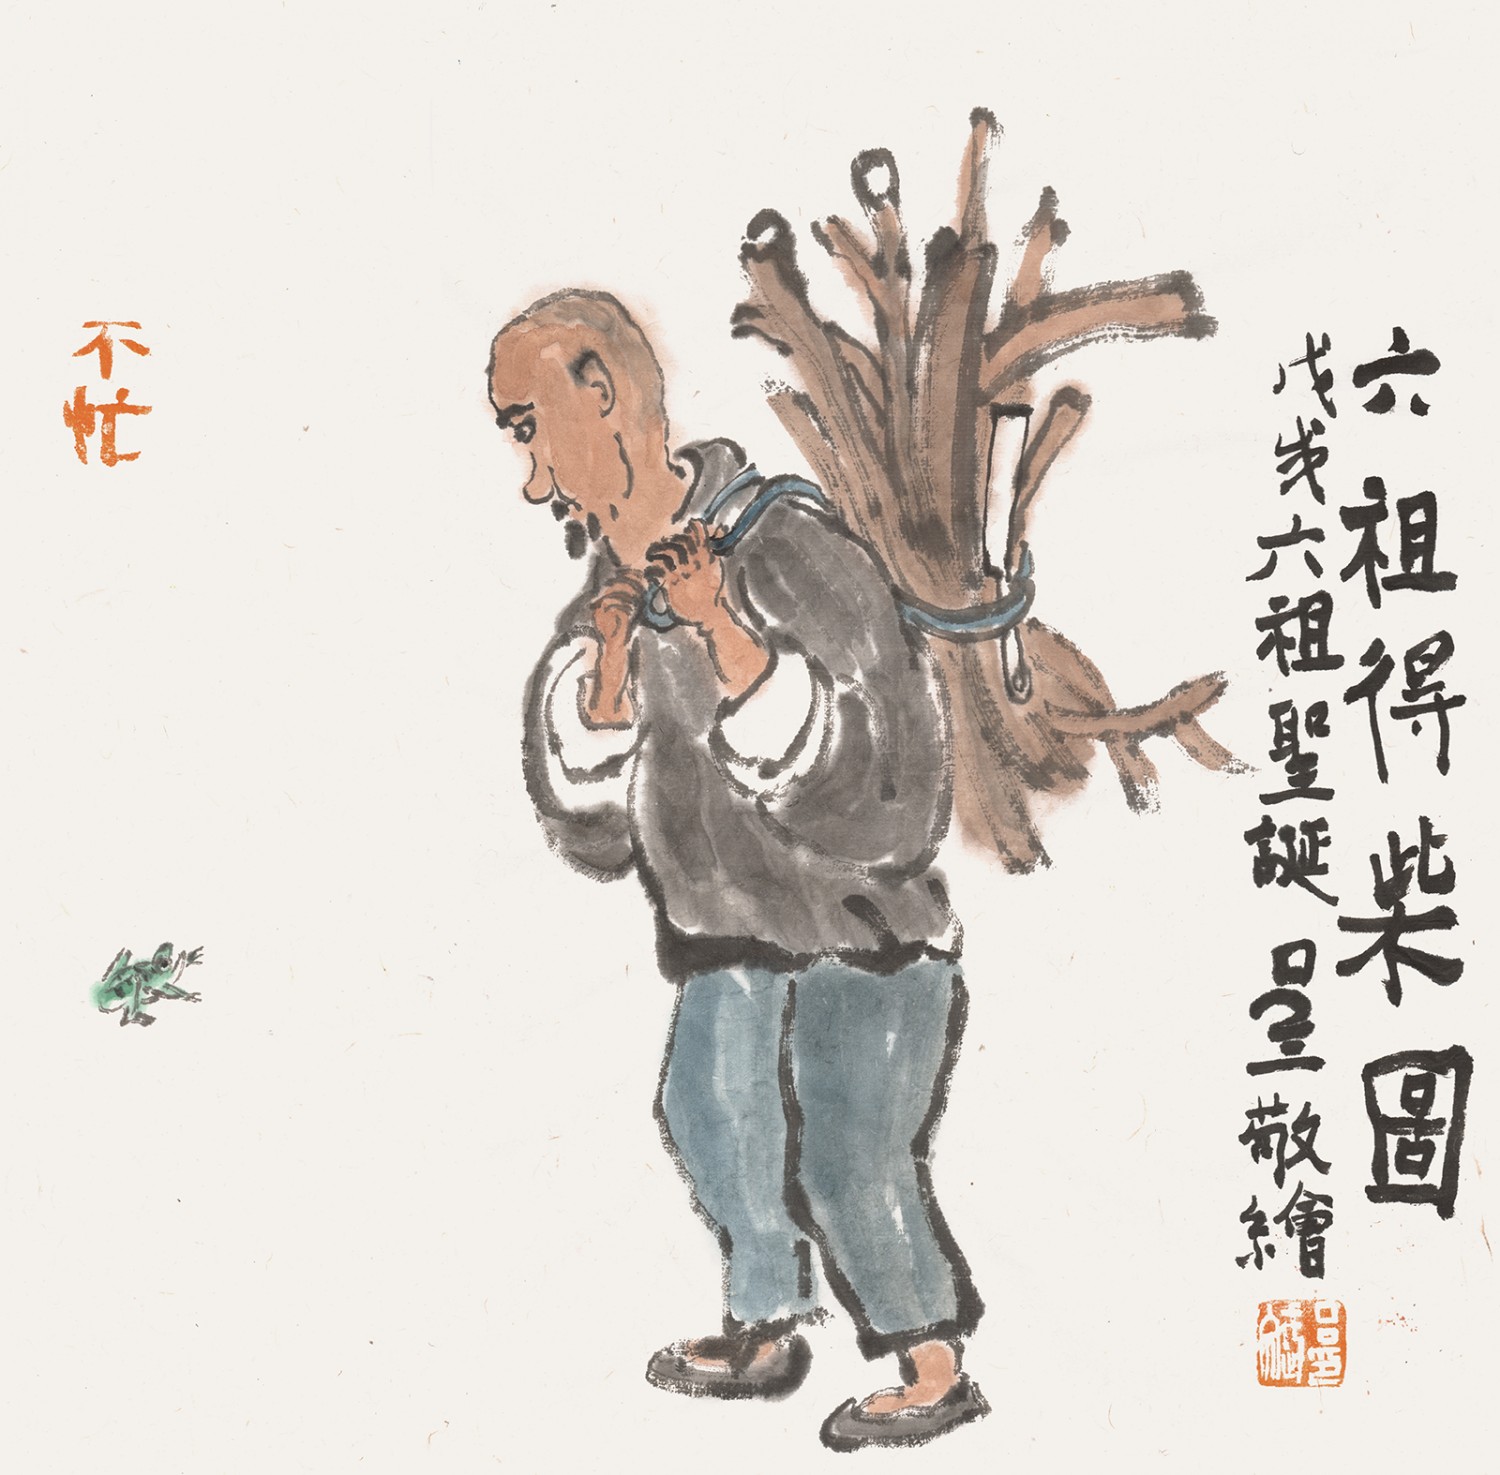 六祖得柴圖
戊戌六祖聖誕吕三敬繪
不忙